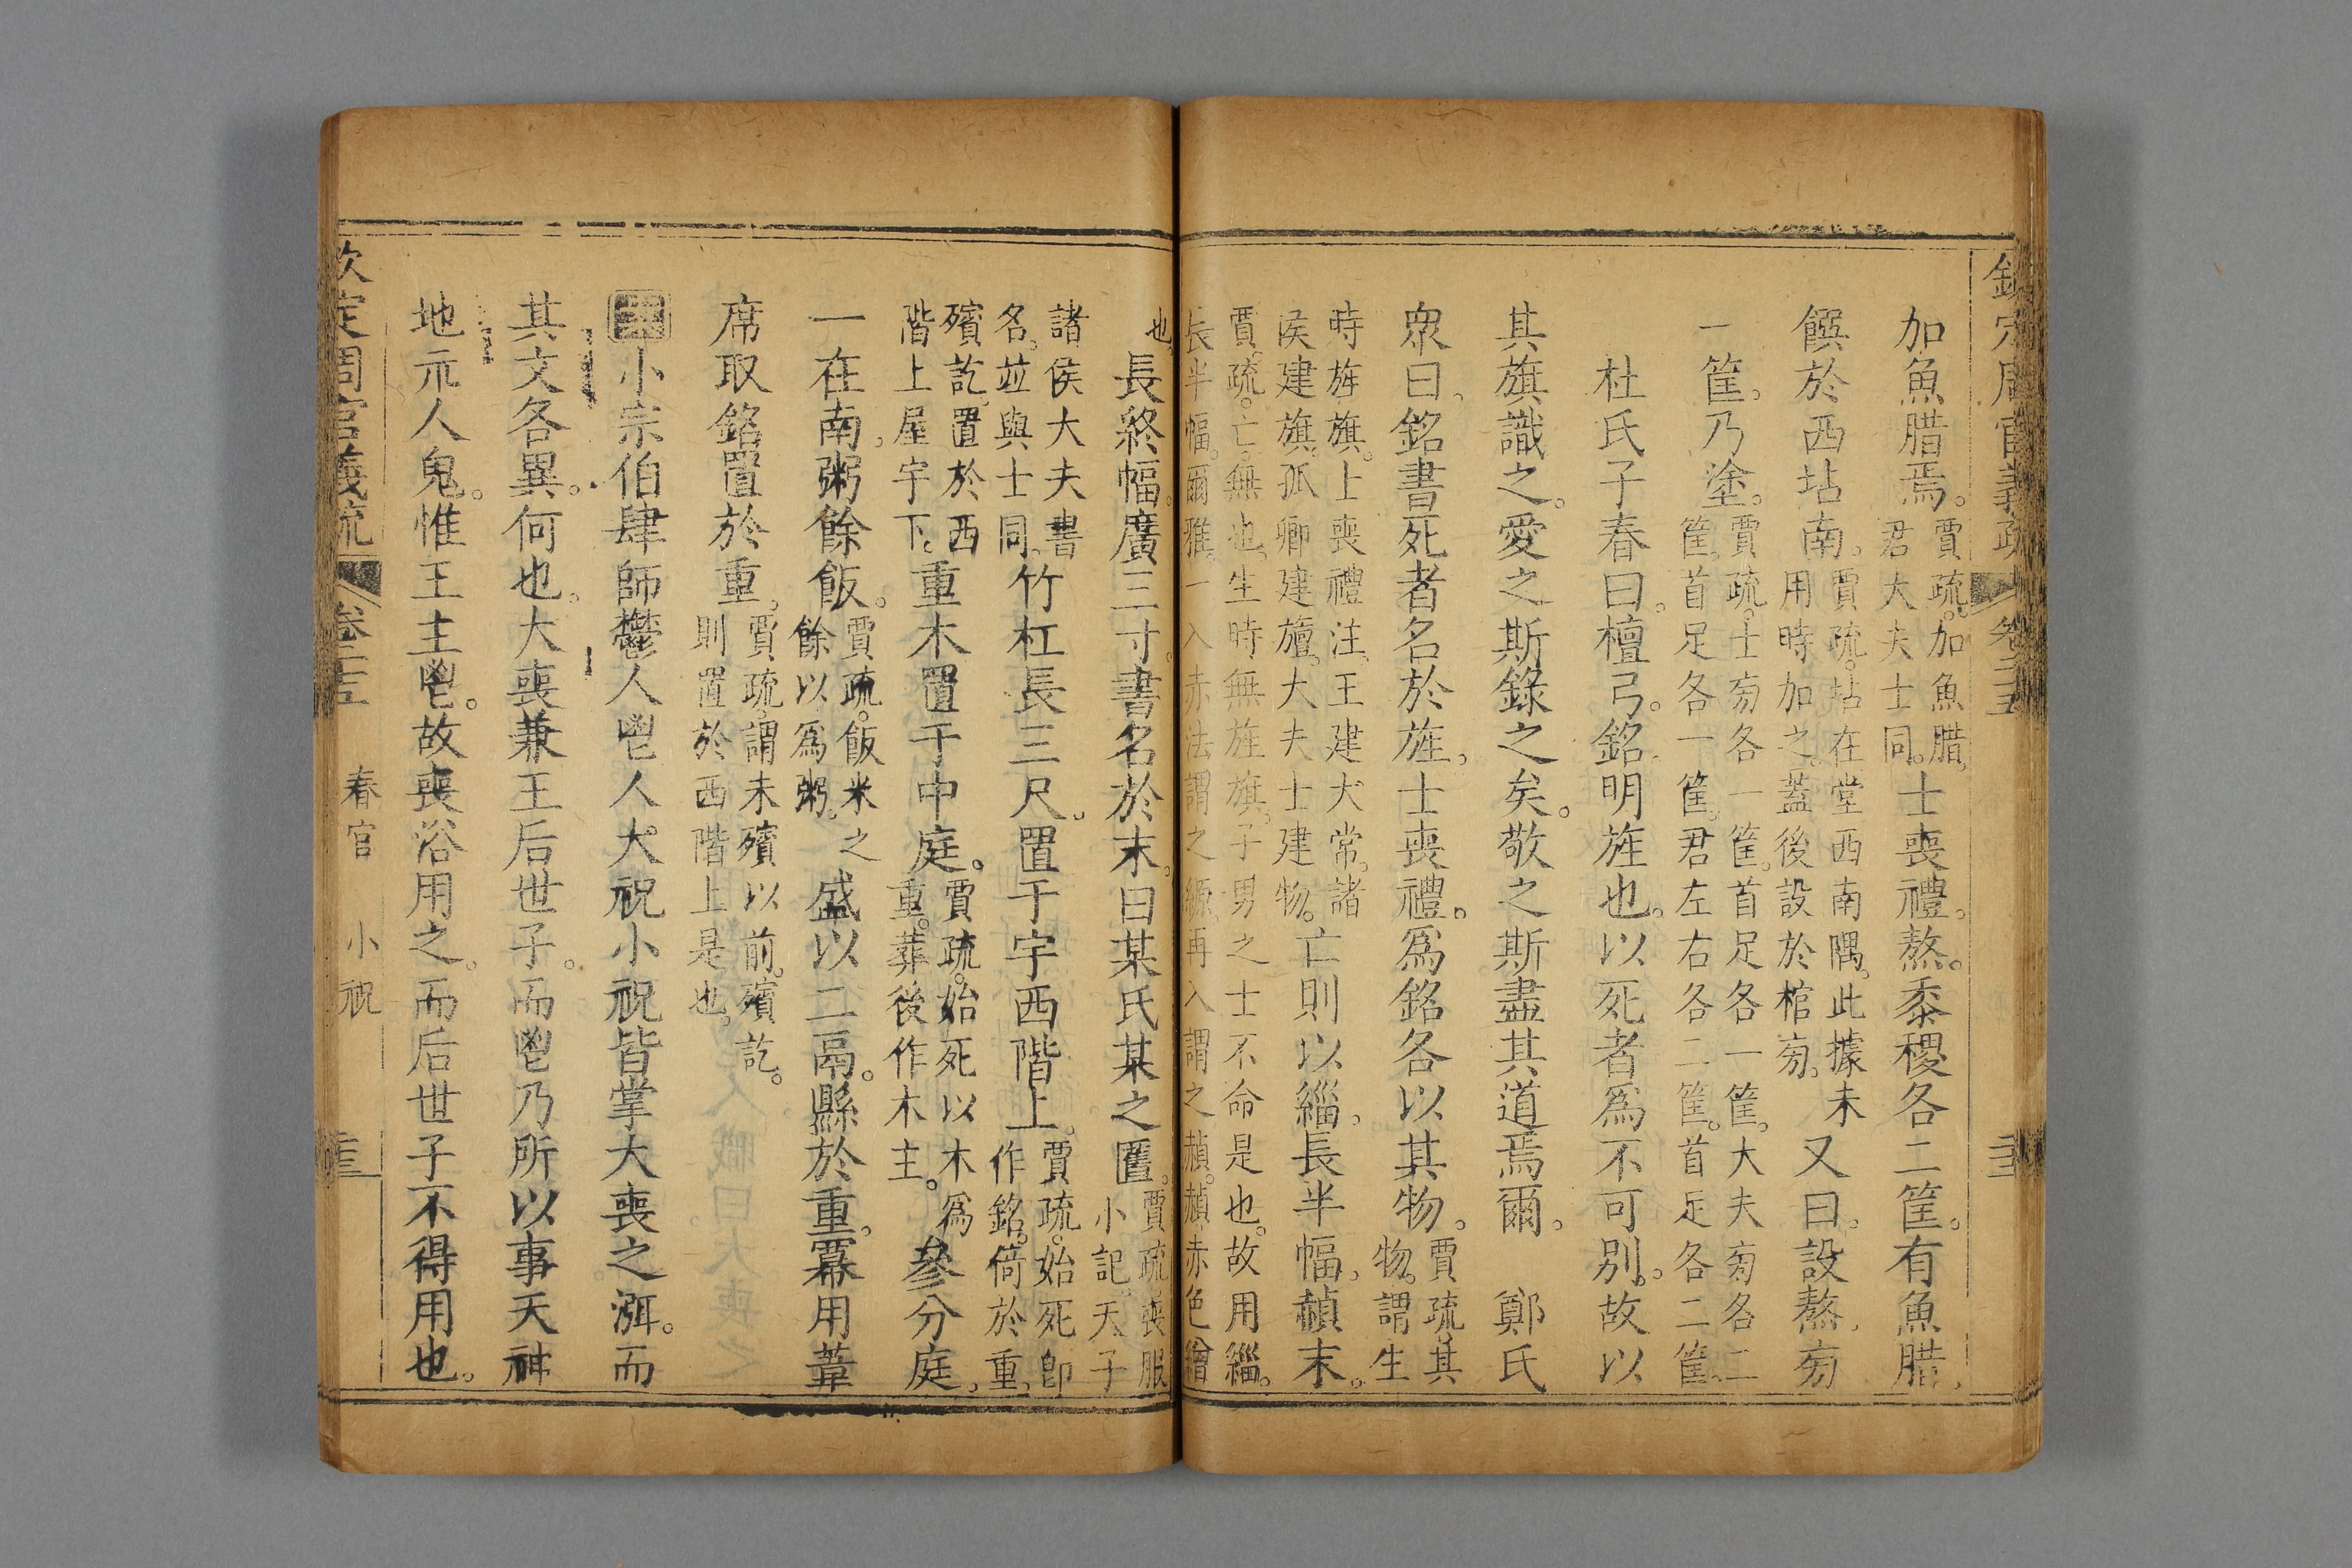 加魚腊焉。賈疏。加魚腊。君大夫士同。士喪禮。熬。黍稷各二筐。有魚腊。
饌於西坫南。賈疏。坫在堂西南隅。此據未用時加之。蓋後設於棺旁。又曰。設熬。旁
一筐。乃塗。賈疏。士旁各一筐。首足各一筐。大夫旁各二筐。首足各一筐。君左右各二筐。首足各二筐。
杜氏子春曰。檀弓。銘明旌也。以死者爲不可別。故以
其旗識之。愛之斯錄之矣。敬之斯盡其道焉爾。 鄭氏
衆曰。銘書死者名於旌。士喪禮。爲銘各以其物。賈疏。其物。謂生
時旌旗。上喪禮注。王建大常。諸侯建旗。孤卿建旜。大夫士建物。亡則以緇。長半幅。赬末。
賈疏。亡。無也。生時無旌旗。子男之士不命是也。故用緇。長半幅。爾雅。一入赤法謂之縓。再入謂之赬。赬。赤色繒
也。長終幅。廣三寸。書名於末。曰某氏某之匶。賈疏。喪服小記。天子
諸侯大夫書名。並與士同。竹杠長三尺。置于宇西階上。賈疏。始死卽作銘。倚於重。
殯訖。置於西階上屋宇下。重木置于中庭。賈疏。始死以木爲重。葬後作木主。參分庭。
一在南。粥餘飯。賈疏。飯米之餘以爲粥。盛以二鬲。縣於重。冪用葦
席取銘置於重。賈疏。謂未殯以前。殯訖。則置於西階上是也。
小宗伯肆師鬱人鬯人大祝小祝皆掌大喪之渳。而
其文各異。何也。大喪兼王后世子。而鬯乃所以事天神
地示人鬼。惟王主鬯。故喪浴用之。而后世子不得用也。
欽定周官義疏 卷二十五 春官 小祝